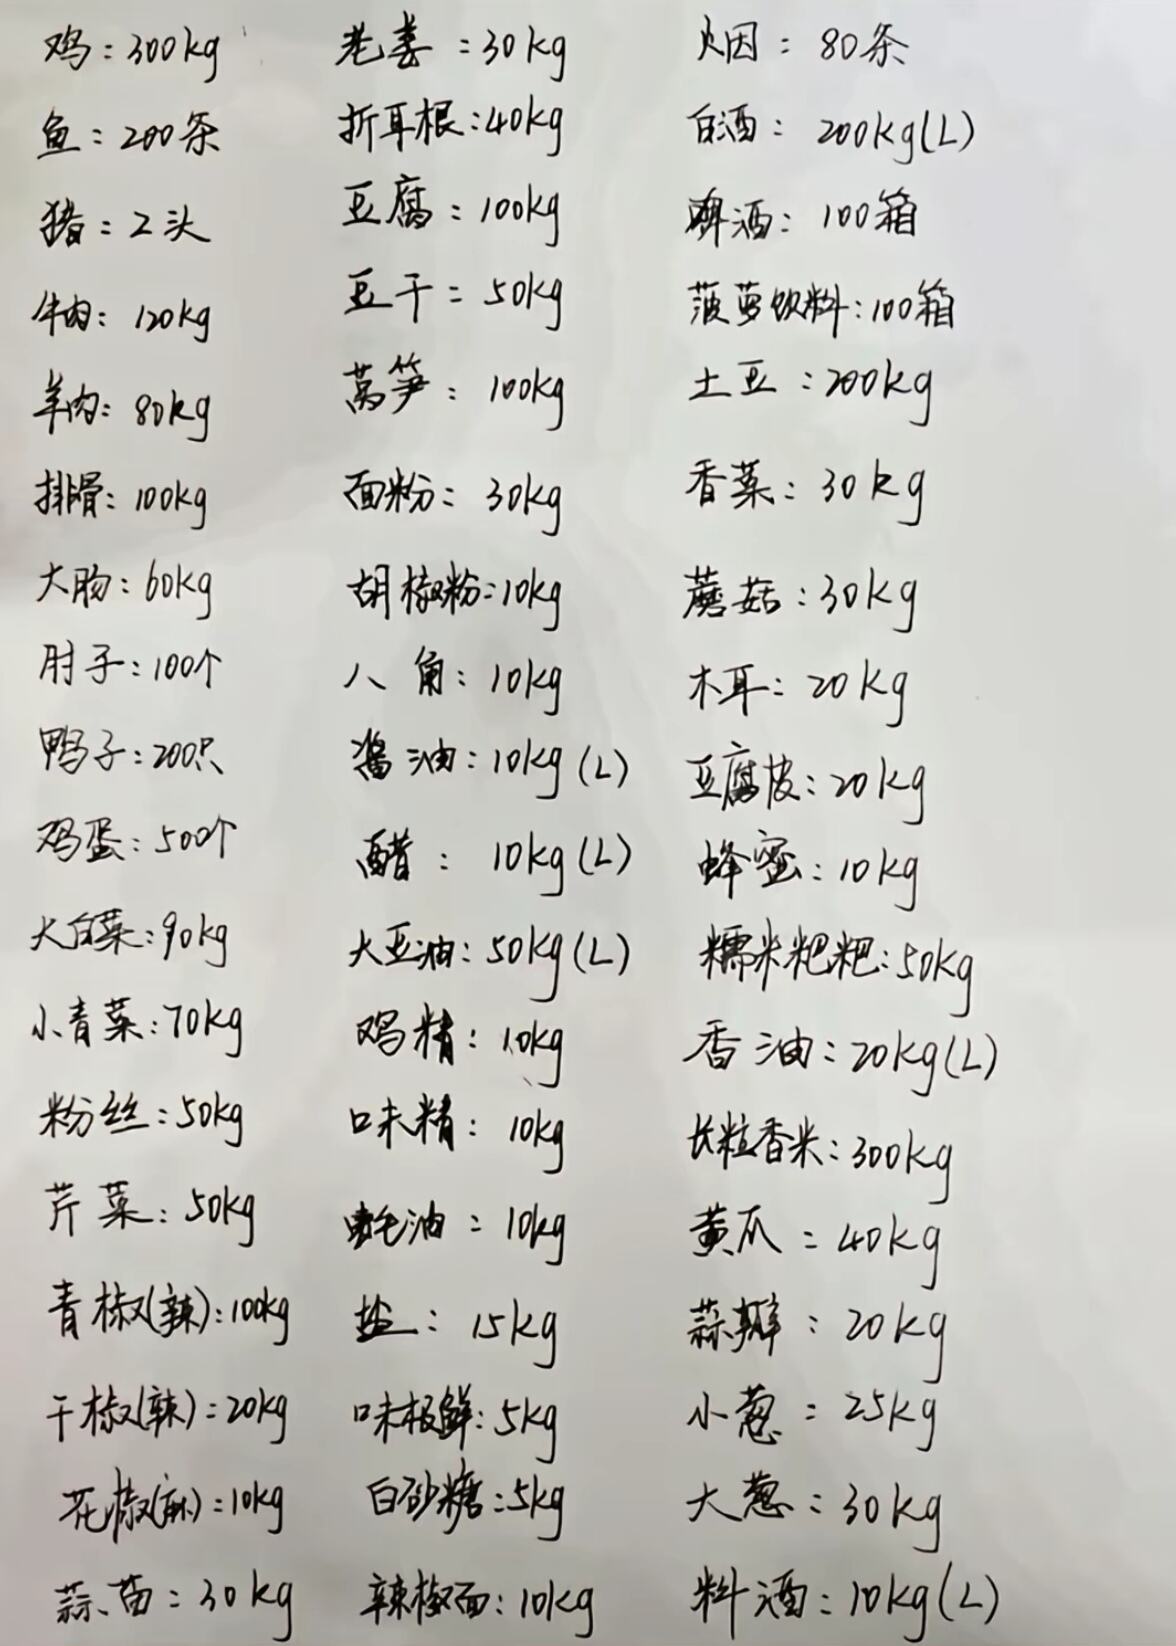 鸡：300kg
鱼：200条
猪：2头
牛肉：120kg
羊肉：80kg
排骨：100kg
大肠：60kg
肘子：100个
鸭子：200只
鸡蛋：500个
大白菜：90kg
小青菜：70kg
粉丝：50kg
芹菜：50kg
青椒(辣)：100kg
干椒(辣)：20kg
花椒(麻)：10kg
蒜苗：30kg
老姜：30kg
折耳根：40kg
豆腐：100kg
豆干：50kg
莴笋：100kg
面粉：30kg
胡椒粉：10kg
八角：10kg
酱油：10kg(L)
醋：10kg(L)
大豆油：50kg(L)
鸡精：10kg
味精：10kg
蚝油：10kg
盐：15kg
味极鲜：5kg
白砂糖：5kg
辣椒面：10kg
烟：80条
白酒：200kg(L)
啤酒：100箱
菠萝饮料：100箱
土豆：200kg
香菜：30kg
蘑菇：30kg
木耳：20kg
豆腐皮：20kg
蜂蜜：10kg
糯米粑粑：50kg
香油：20kg(L)
长粒香米：300kg
黄瓜：40kg
蒜瓣：20kg
小葱：25kg
大葱：30kg
料酒：10kg(L)